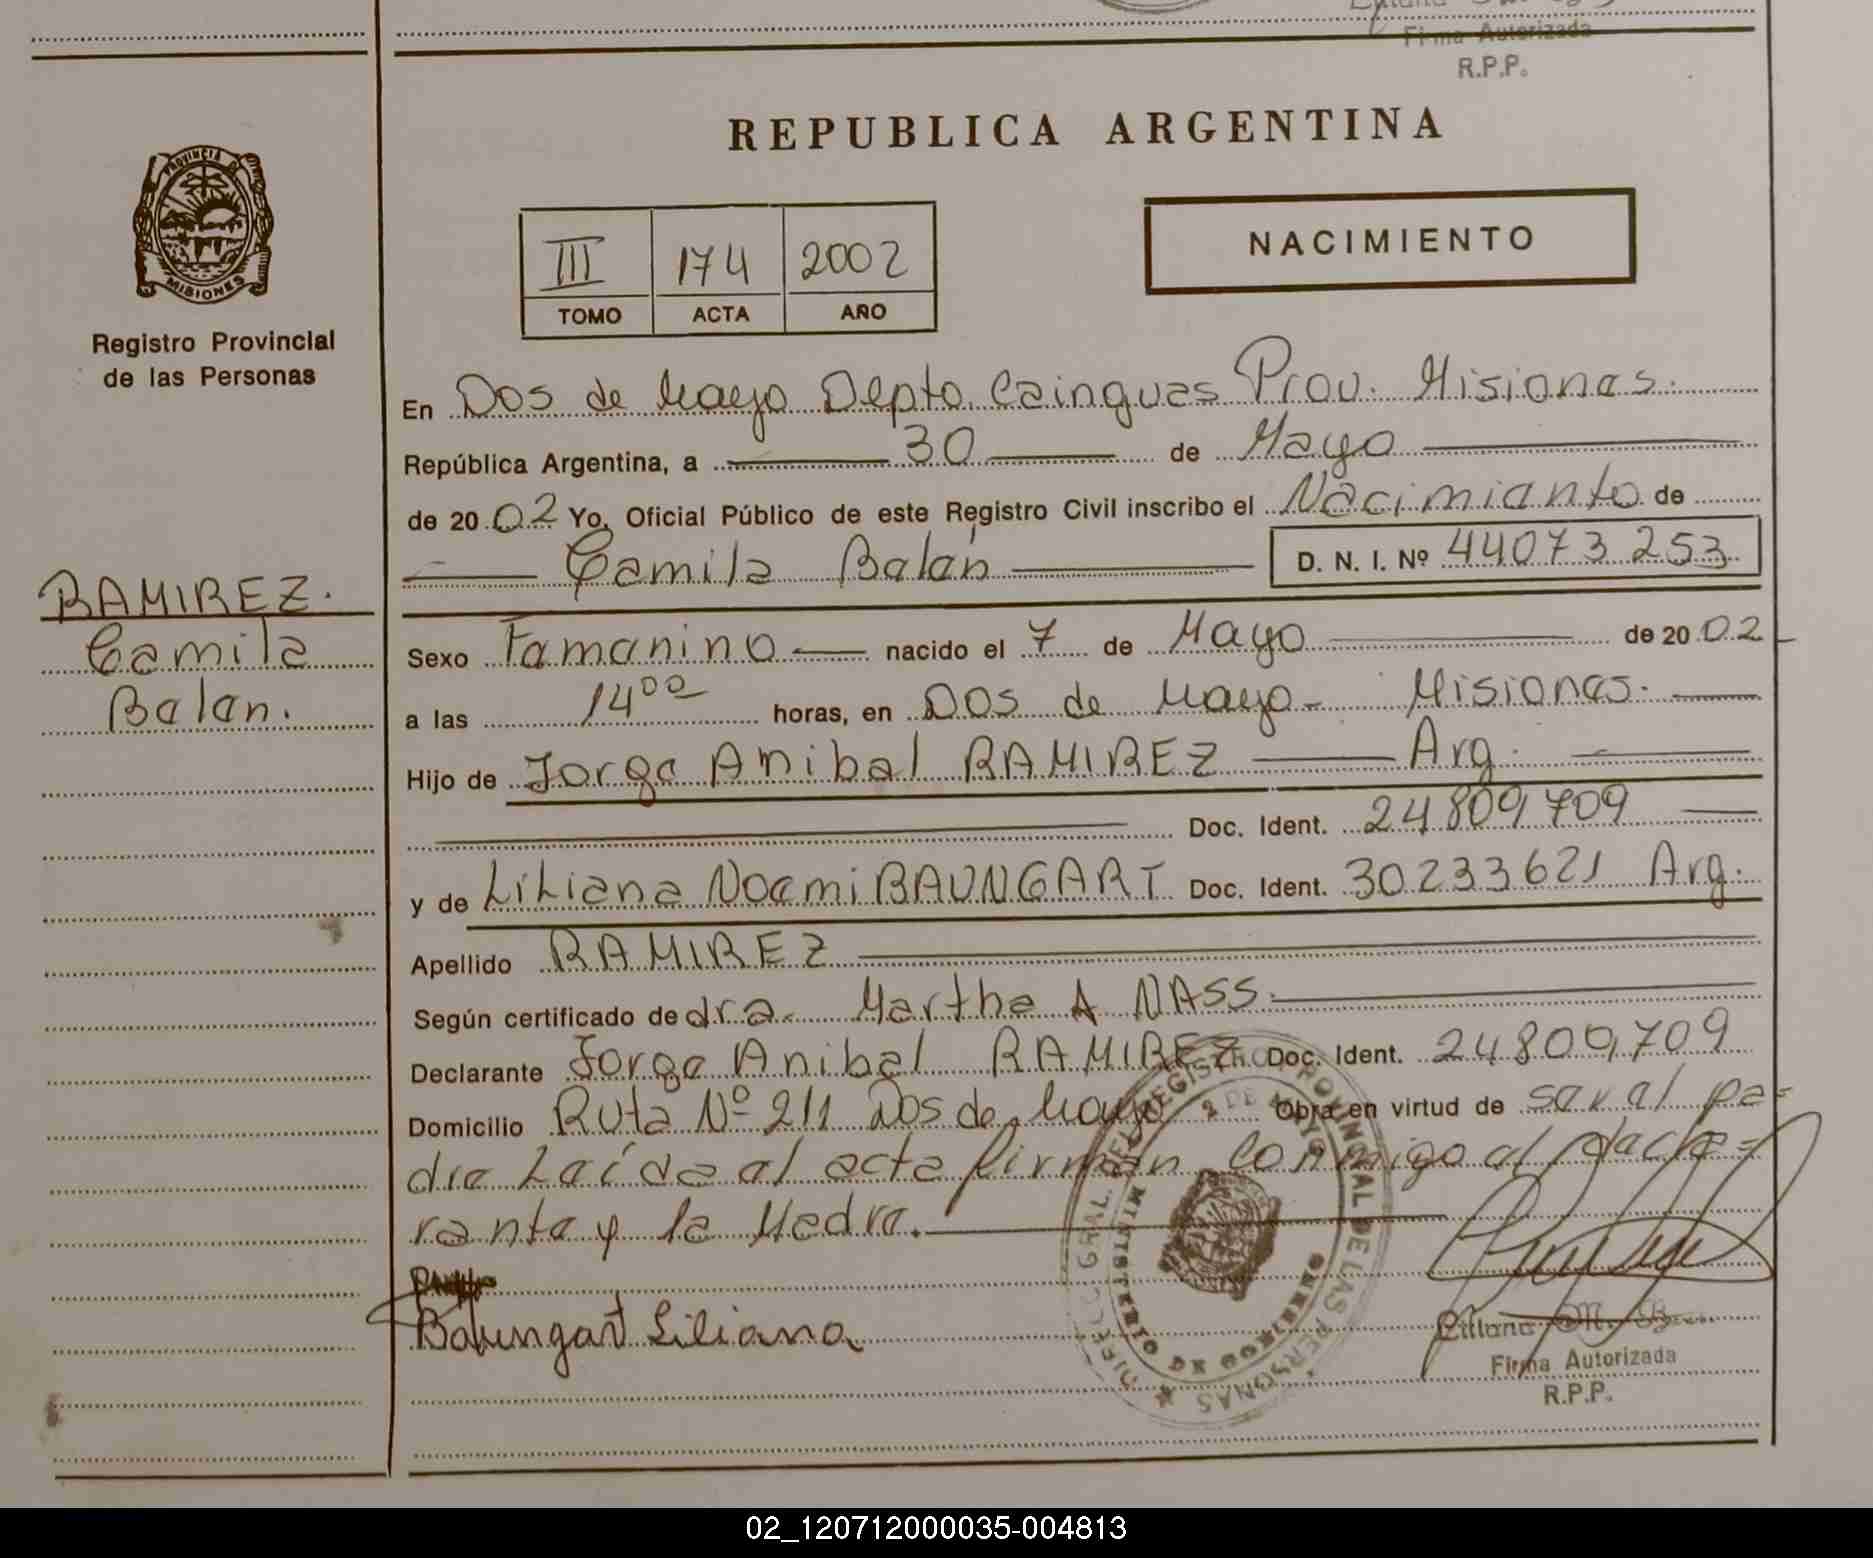 Firma Autorizada
R.P.P.
REPUBLICA ARGENTINA
PROVINCIA DE
MISIONES
Registro Provincial
de las Personas
III 174 2002
TOMO ACTA AÑO
NACIMIENTO
En Dos de Mayo Depto. Cainguas Prov. Misiones.
República Argentina, a 30 de Mayo
de 2002 Yo, Oficial Público de este Registro Civil inscribo el Nacimiento de
Camila Balán D. N. I. Nº 44073253
RAMIREZ.
Camila
Balan.
Sexo Femenino nacido el 7 de Mayo de 2002
a las 14⁰⁰ horas, en Dos de Mayo - Misiones.
Hijo de Jorge Anibal RAMIREZ Arg.
Doc. Ident. 24809709
y de Liliana Noemi BAUNGART Doc. Ident. 30233621 Arg.
Apellido RAMIREZ
Según certificado de dra. Marthe A NASS.
Declarante Jorge Anibal RAMIREZ Doc. Ident. 24809709
Domicilio Ruta Nº 211 Dos de Mayo Obra en virtud de ser el pa=
dre Leída el acta firman conmigo el decla=
rante y la Madre.
Baungart Liliana
DIREC. GRAL. DEL REGISTRO PROVINCIAL DE LAS PERSONAS
2 DE MAYO
MINISTERIO DE GOBIERNO
Firma Autorizada
R.P.P.
02_120712000035-004813